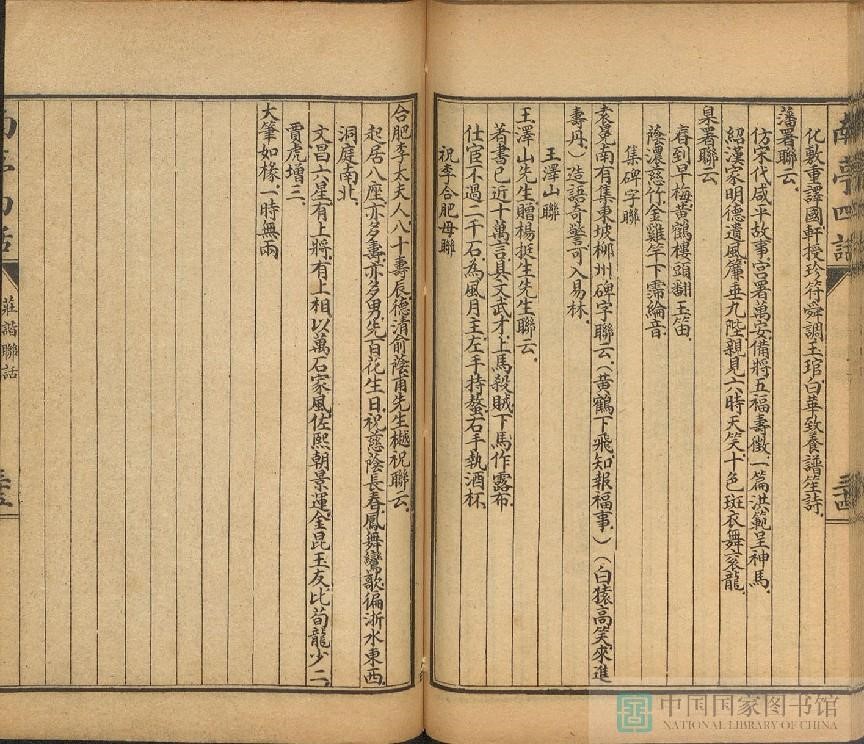 南亭四話
化敷重譯國軒授珍符舜調玉琯白華致養譜笙詩
藩署聯云
仿宋代咸平故事宮署萬安備將五福壽徵一篇洪範呈神馬
紹漢家明德遺風簾垂九陛親見六時天笑十色斑衣舞袞龍
臬署聯云
春到早梅黃鶴樓頭翻玉笛
蔭濃慈竹金雞竿下霈綸音
集碑字聯
袁晃南有集東坡柳州碑字聯云（黃鶴下飛知報福事）（白猿高笑來進
壽丹）造語奇警可入易林
王澤山聯
王澤山先生贈楊挺生先生聯云
著書已近十萬言具文武才上馬殺賊下馬作露布
仕宦不過二千石為風月主左手持螯右手執酒杯
祝李合肥母聯
合肥李太夫人八十壽辰德清俞蔭甫先生樾祝聯云
起居八座亦多壽亦多男先百花生日祝慈蔭長春鳳舞鸞歌徧浙水東西
洞庭南北
文昌六星有上將有上相以萬石家風佐熙朝景運金昆玉友比荀龍少二
賈虎增三
大筆如椽一時無兩
莊諧聯話
三五
中国国家图书馆
NATIONAL LIBRARY OF CHINA